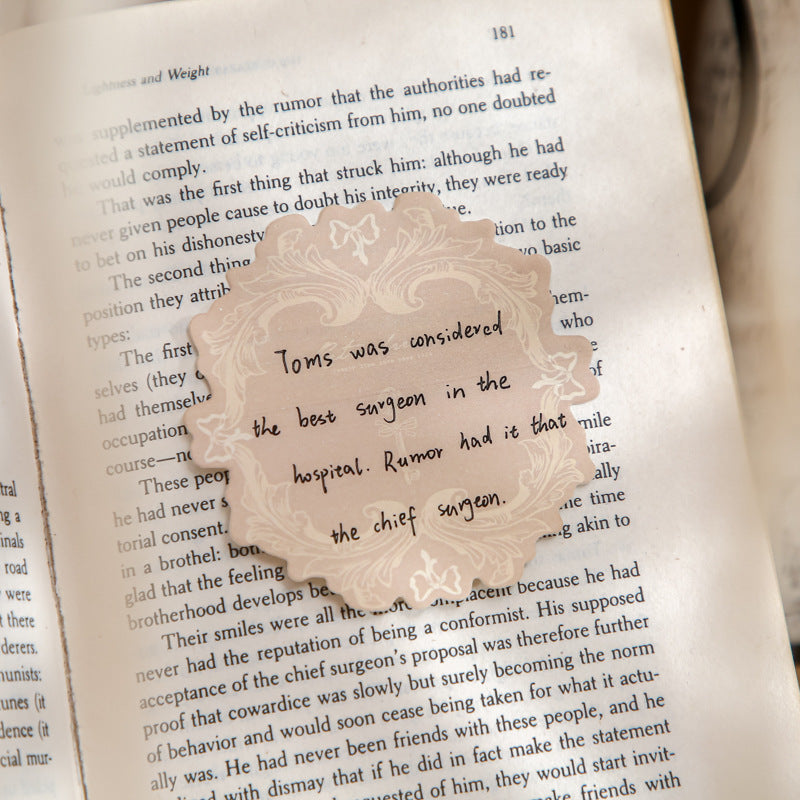 181
Lightness and Weight
supplemented by the rumor that the authorities had re-
a statement of self-criticism from him, no one doubted
would comply.
That was the first thing that struck him: although he had
never given people cause to doubt his integrity, they were ready
to bet on his dishonesty
The second thing tion to the
position they attrib wo basic
types:
The first hem-
selves (they who
had themselve
occupation of
course—no mile
These peop
he had never s ally
torial consent. time
in a brothel: g akin to
glad that the feeling
brotherhood develops be
Their smiles were all the more complacent because he had
never had the reputation of being a conformist. His supposed
acceptance of the chief surgeon's proposal was therefore further
proof that cowardice was slowly but surely becoming the norm
of behavior and would soon cease being taken for what it actu-
ally was. He had never been friends with these people, and he
with dismay that if he did in fact make the statement
of him, they would start invit-
make friends with
Toms was considered
the best surgeon in the
hospital. Rumor had it that
the chief surgeon.
tral
ng a
inals
road
were
t there
derers.
munists:
unes (it
dence (it
cial mur-